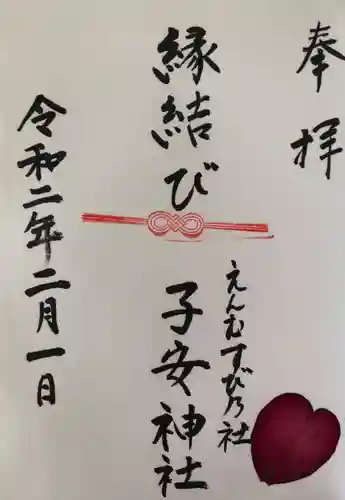 奉拝
縁結び
えんむすび乃社
子安神社
令和二年二月一日